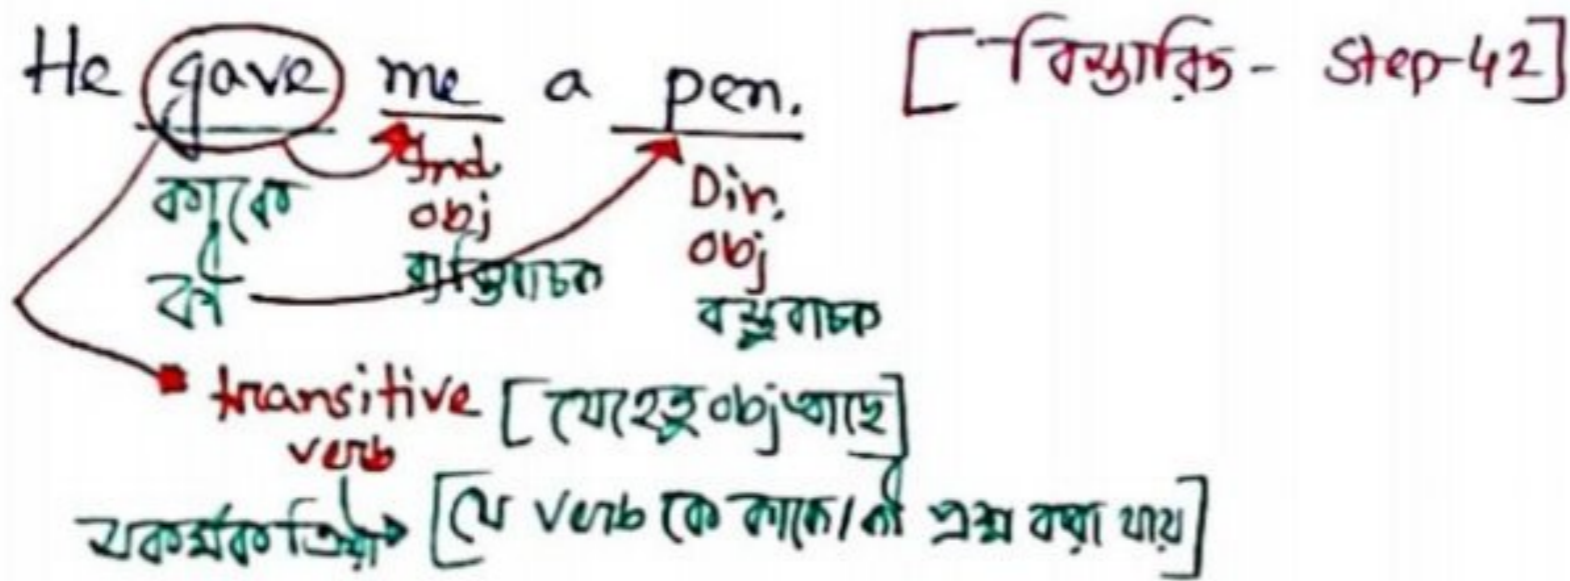 He gave me a pen. [বিস্তারিত - Step-42]
কাকে Ind. obj Dir. obj
কী ব্যক্তিবাচক বস্তুবাচক
transitive verb [যেহেতু obj আছে]
সকর্মক ক্রিয়া [যে verb কে কাকে/কী প্রশ্ন করা যায়]